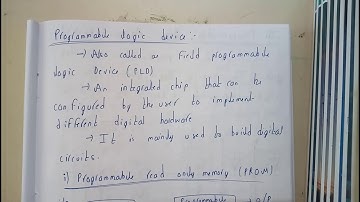 Programmable Logic device :-
→ Also called as Field programmable
Logic Device (PLD)
→ An integrated chip that can be
configured by the user to implement
different digital hardware
→ It is mainly used to build digital
circuits.
i) Programmable read only memory (PROM)
Programmable → O/P